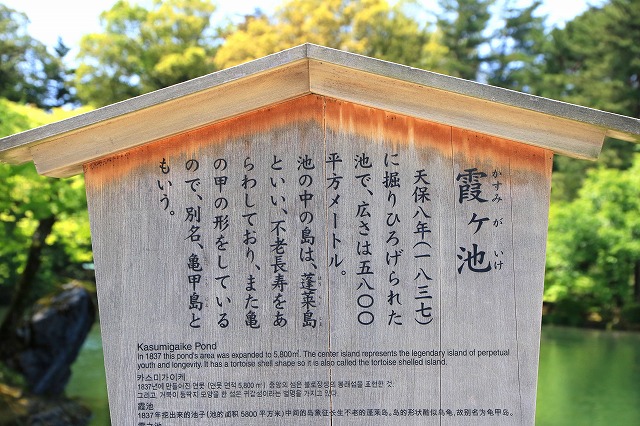 霞ヶ池
かすみ が いけ
天保八年(一八三七)
に掘りひろげられた
池で、広さは五八〇〇
平方メートル。
池の中の島は、蓬莱島
といい、不老長寿をあ
らわしており、また亀
の甲の形をしている
ので、別名、亀甲島と
もいう。
Kasumigaike Pond
In 1837 this pond's area was expanded to 5,800㎡. The center island represents the legendary island of perpetual
youth and longevity. It has a tortoise shell shape so it is also called the tortoise shelled island.
카스미가이케
1837년에 만들어진 연못 (연못 면적 5,800 ㎡) 중앙의 섬은 불로장생의 봉래섬을 표현한 것.
그리고, 거북이 등딱지 모양을 한 섬은 귀갑섬이라는 별명을 가지고 있다.
霞池
1837年挖出来的池子(池的面积 5800 平方米) 中间的岛象征长生不老的蓬莱岛。岛的形状酷似乌龟，故别名为龟甲岛。